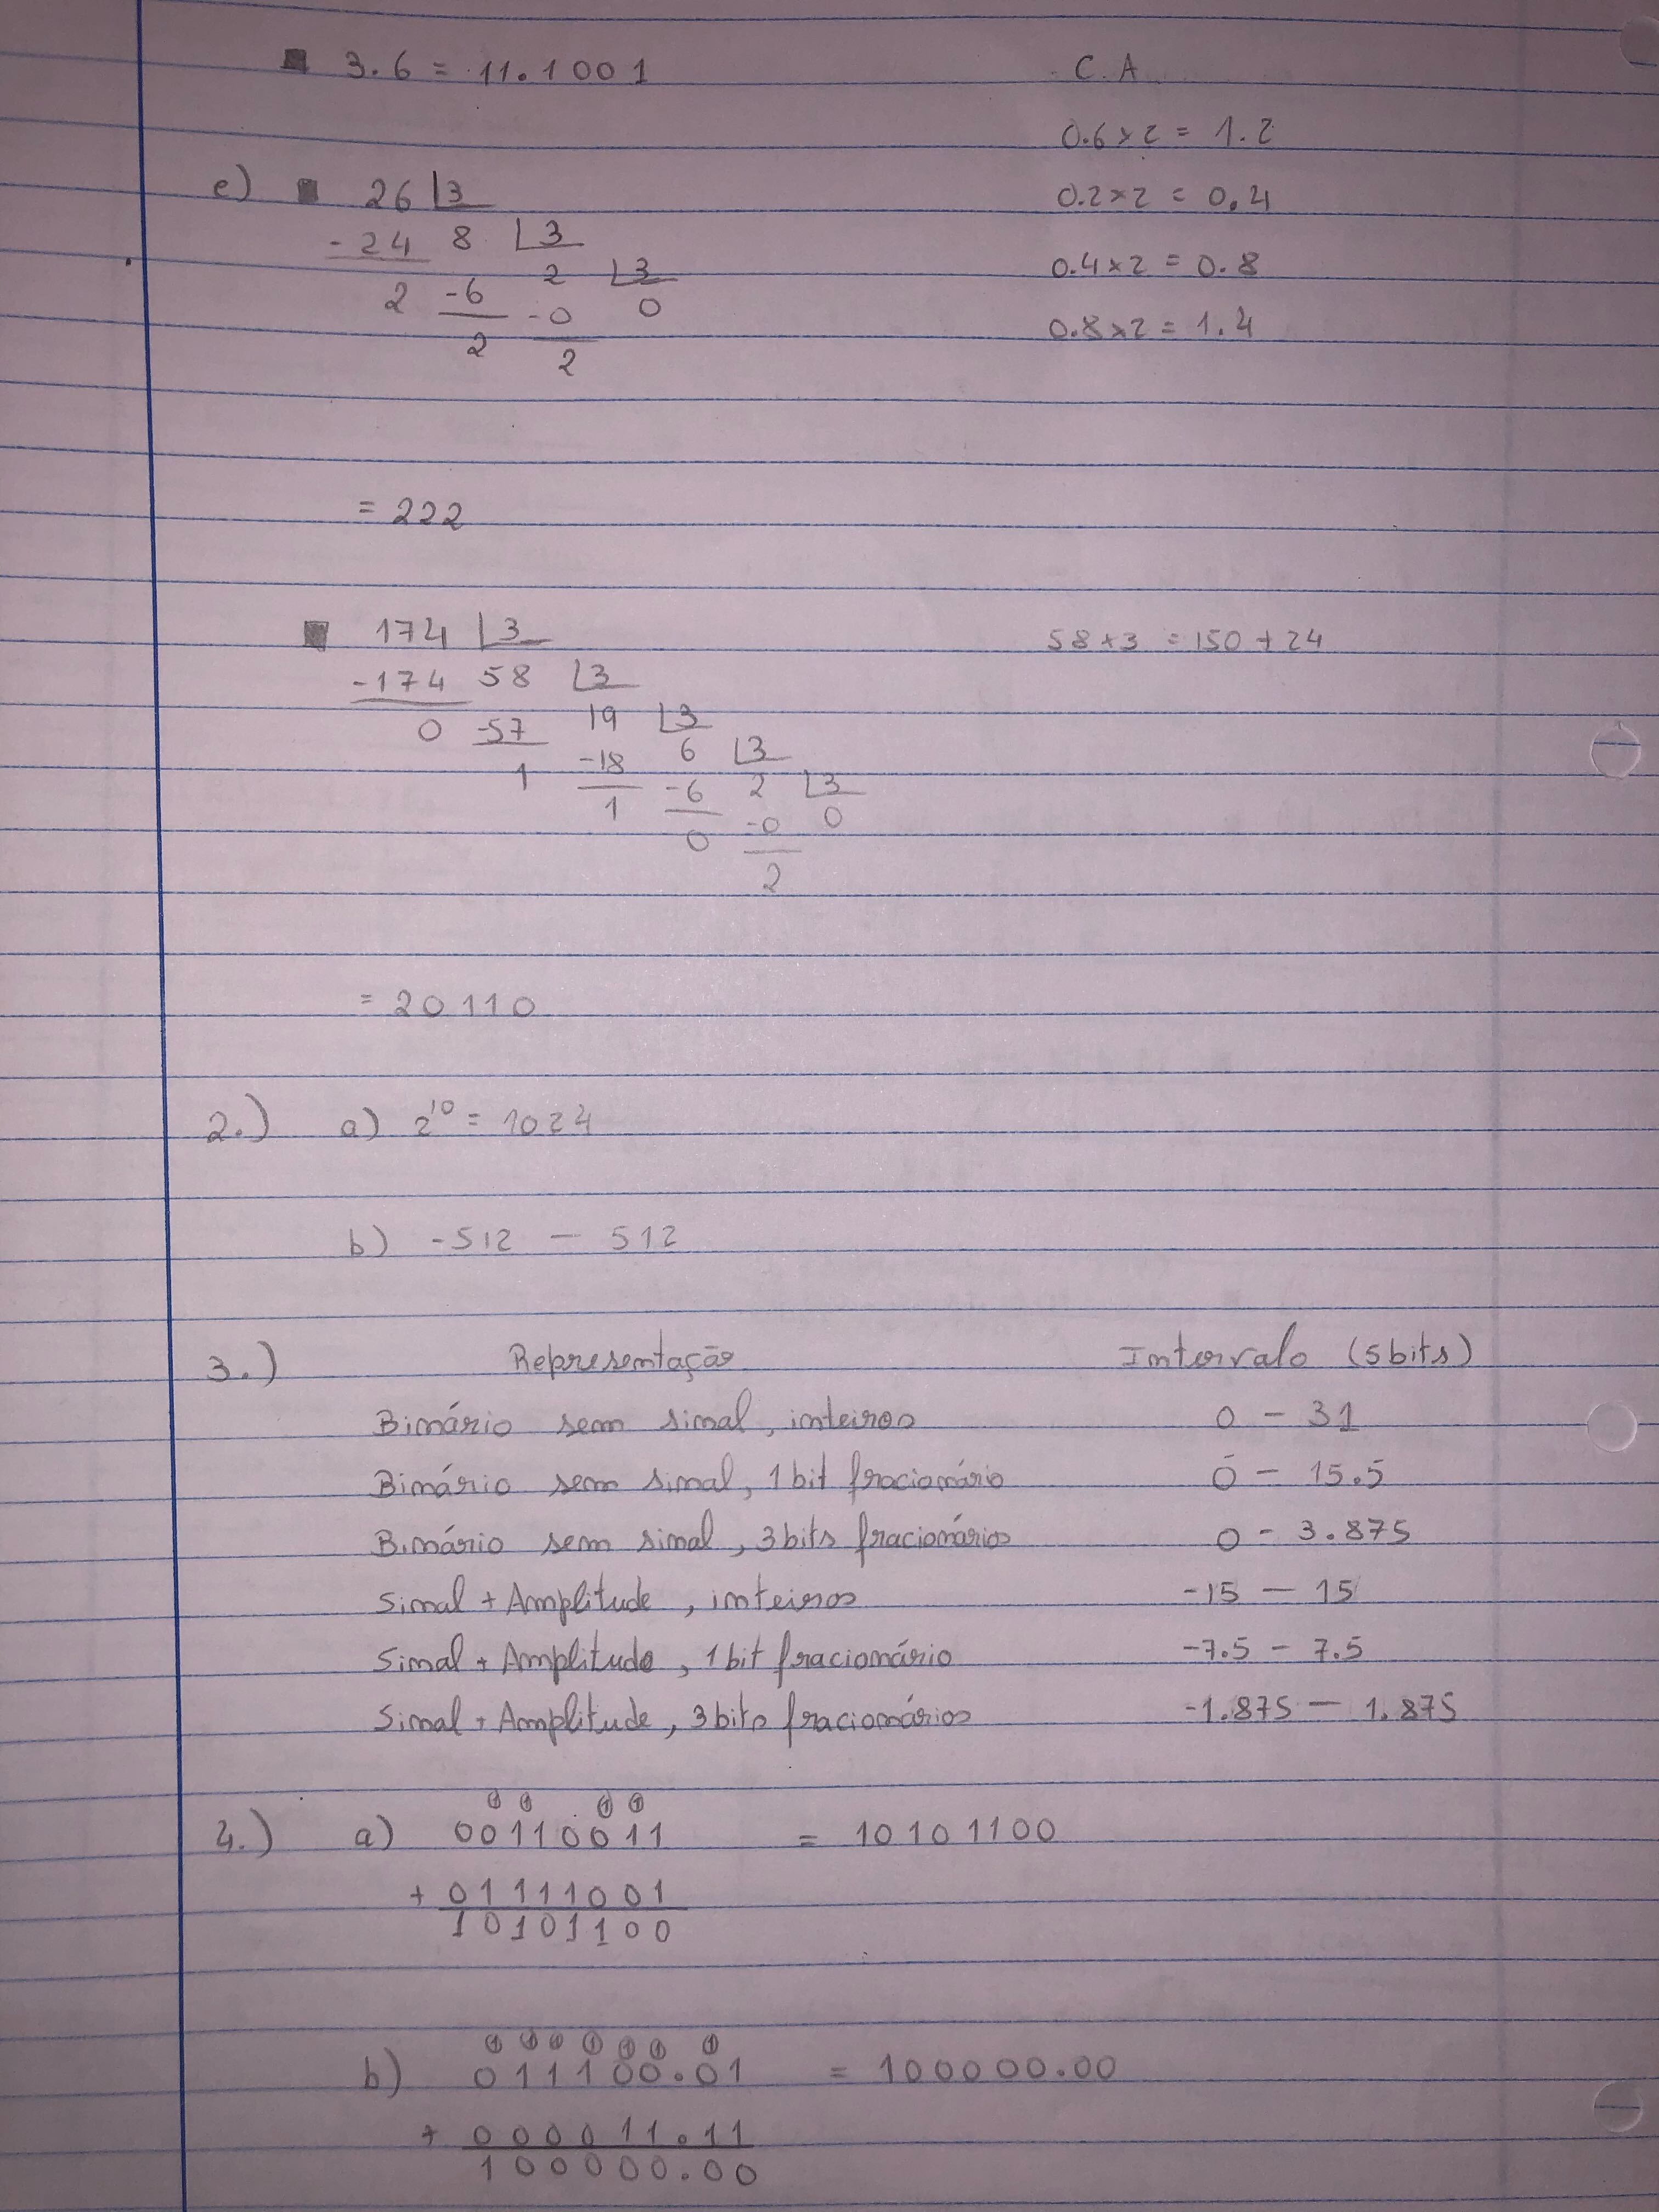 3.6 = 11.1001
C.A
0.6×2 = 1.2
0.2×2 = 0.4
0.4×2 = 0.8
0.8×2 = 1.4
e) 26 3
-24 8 3
2 -6 2 3
2 -0 0
2
= 222
174 3
58×3 = 150+24
-174 58 3
0 -57 19 3
1 -18 6 3
1 -6 2 3
0 -0 0
2
= 20110
2.) a) 2¹⁰ = 1024
b) -512 — 512
3.) Representação Intervalo (5bits)
Binário sem sinal, inteiros 0 - 31
Binário sem sinal, 1 bit fracionário 0 - 15.5
Binário sem sinal, 3 bits fracionários 0 - 3.875
Sinal + Amplitude, inteiros -15 — 15
Sinal + Amplitude, 1 bit fracionário -7.5 - 7.5
Sinal + Amplitude, 3 bits fracionários -1.875 — 1.875
1 1 1 1
4.) a) 00110011 = 10101100
+ 01111001
10101100
1 1 1 1 1 1 1
b) 011100.01 = 100000.00
+ 000011.11
100000.00